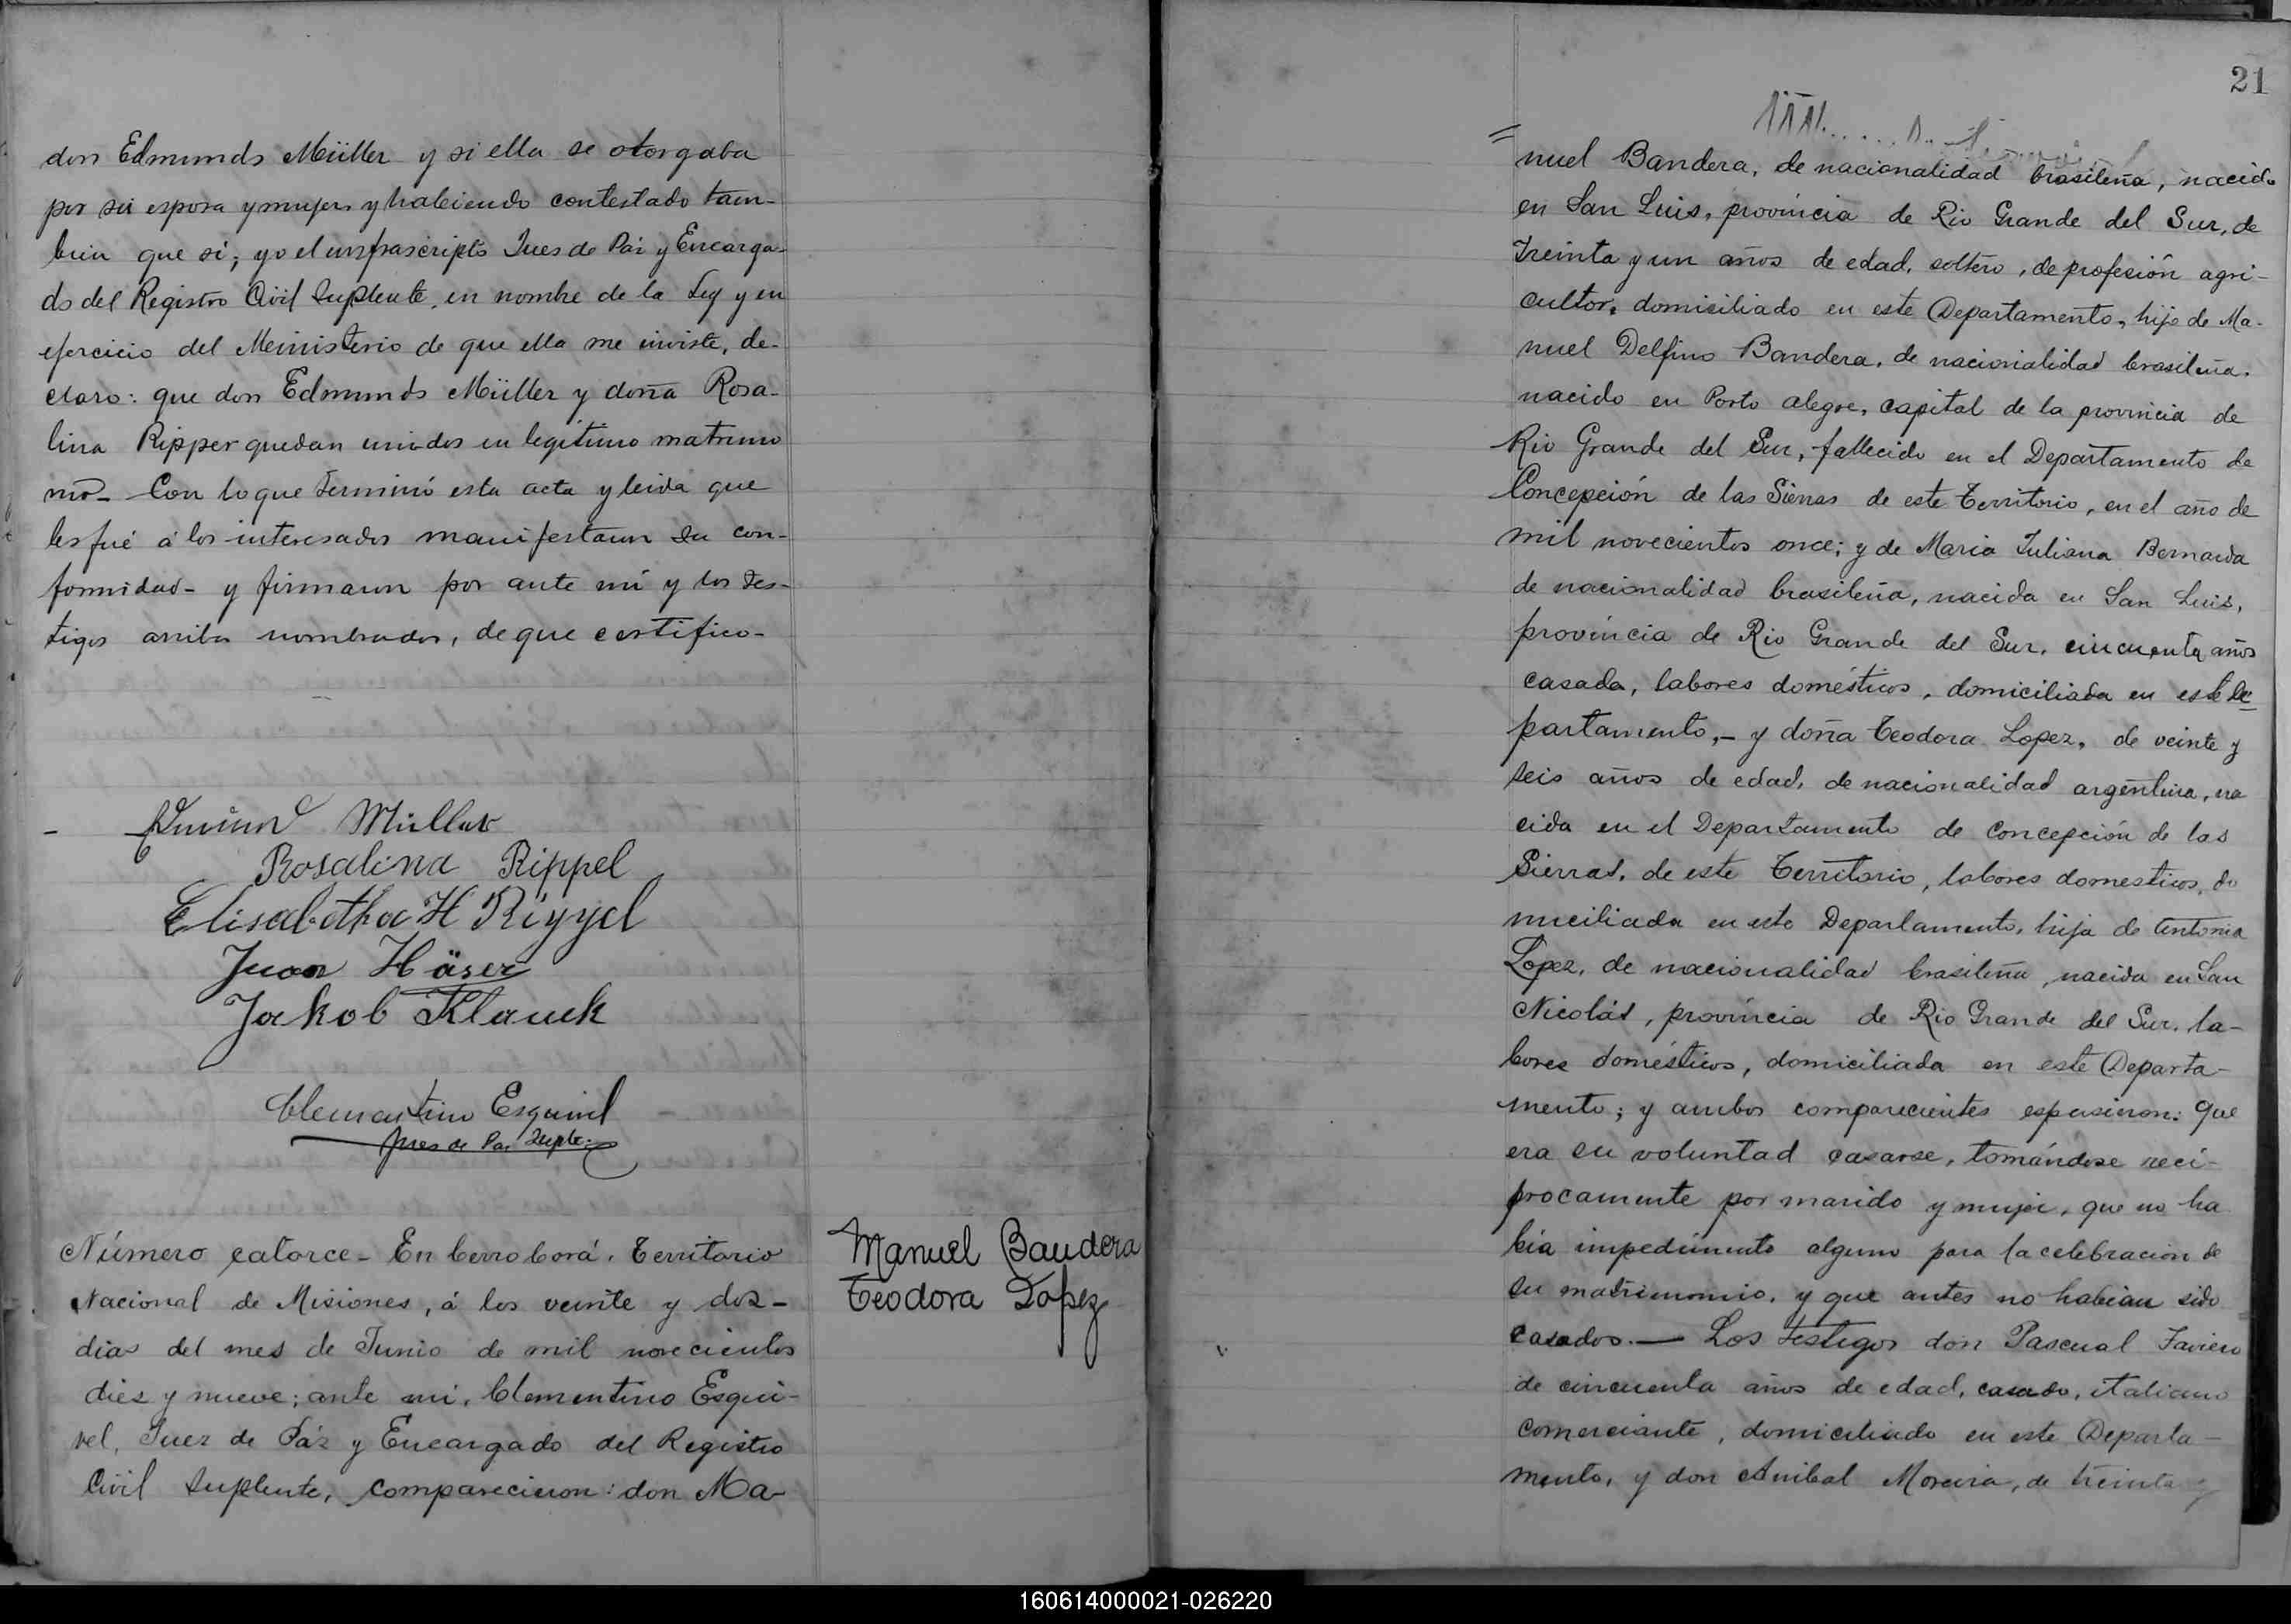 don Edmundo Müller y si ella se otorgaba
por su esposa y mujer y habiendo contestado tam-
bien que si; yo el infrascripto Jues de Páz y Encarga-
do del Registro Civil Suplente, en nombre de la Ley y en
ejercicio del Meinisterio de que ella me inviste, de-
claro: que don Edmundo Müller y doña Rosa-
lina Ripper quedan unidos en legítimo matrimo
nio- Con lo que terminó esta acta y leida que
les fué á los interesados manifestaron su con-
formidad- y firmaron por ante mí y los tes-
tigos arriba nombrados, de que certifico-
Müller
Rosalina Rippel
Elisabetha H Rippel
Juan Häser
Jakob Klauck
Clementino Esquivel
Jues de Paz Suplte.
Número catorce- En Cerro Corá, Territorio
Nacional de Misiones, á los veinte y dos-
dias del mes de Junio de mil novecientos
dies y nueve; ante mi, Clementino Esqui-
vel, Juez de Páz y Encargado del Registro
Civil Suplente, comparecieron: don Ma-
Manuel Bandera
Teodora Lopez
21
nuel Bandera, de nacionalidad brasileña, nacido
en San Luis, provincia de Rio Grande del Sur, de
treinta y un años de edad, soltero, de profesión agri-
cultor, domisiliado en este Departamento, hijo de Ma-
nuel Delfino Bandera, de nacionalidad brasileña,
nacido en Porto alegre, capital de la provincia de
Rio Grande del Sur, fallecido en el Departamento de
Concepción de las Sierras de este Territorio, en el año de
mil novecientos once; y de Maria Juliana Bernarda
de nacionalidad brasileña, nacida en San Luis,
provincia de Rio Grande del Sur, cincuenta años
casada, labores domésticos, domiciliada en este De
partamento,- y doña Teodora Lopez, de veinte y
seis años de edad, de nacionalidad argentina, na
cida en el Departamento de Concepción de las
Sierras, de este Territorio, labores domesticos, do
miciliada en este Departamento, hija de Antonia
Lopez, de nacionalidad brasileña, nacida en San
Nicolás, provincia de Rio Grande del Sur, la-
bores domésticos, domiciliada en este Departa-
mento; y ambos comparecientes espusieron: que
era su voluntad casarse, tomándose reci-
procamente por marido y mujer, que no ha
bia impedimento alguno para la celebracion de
su matrimonio, y que antes no habian sido
casados.— Los testigos don Pascual
de cincuenta años de edad, casado, italiano
comerciante, domiciliado en este Departa-
mento, y don Anibal Moreira, de treinta y
160614000021-026220